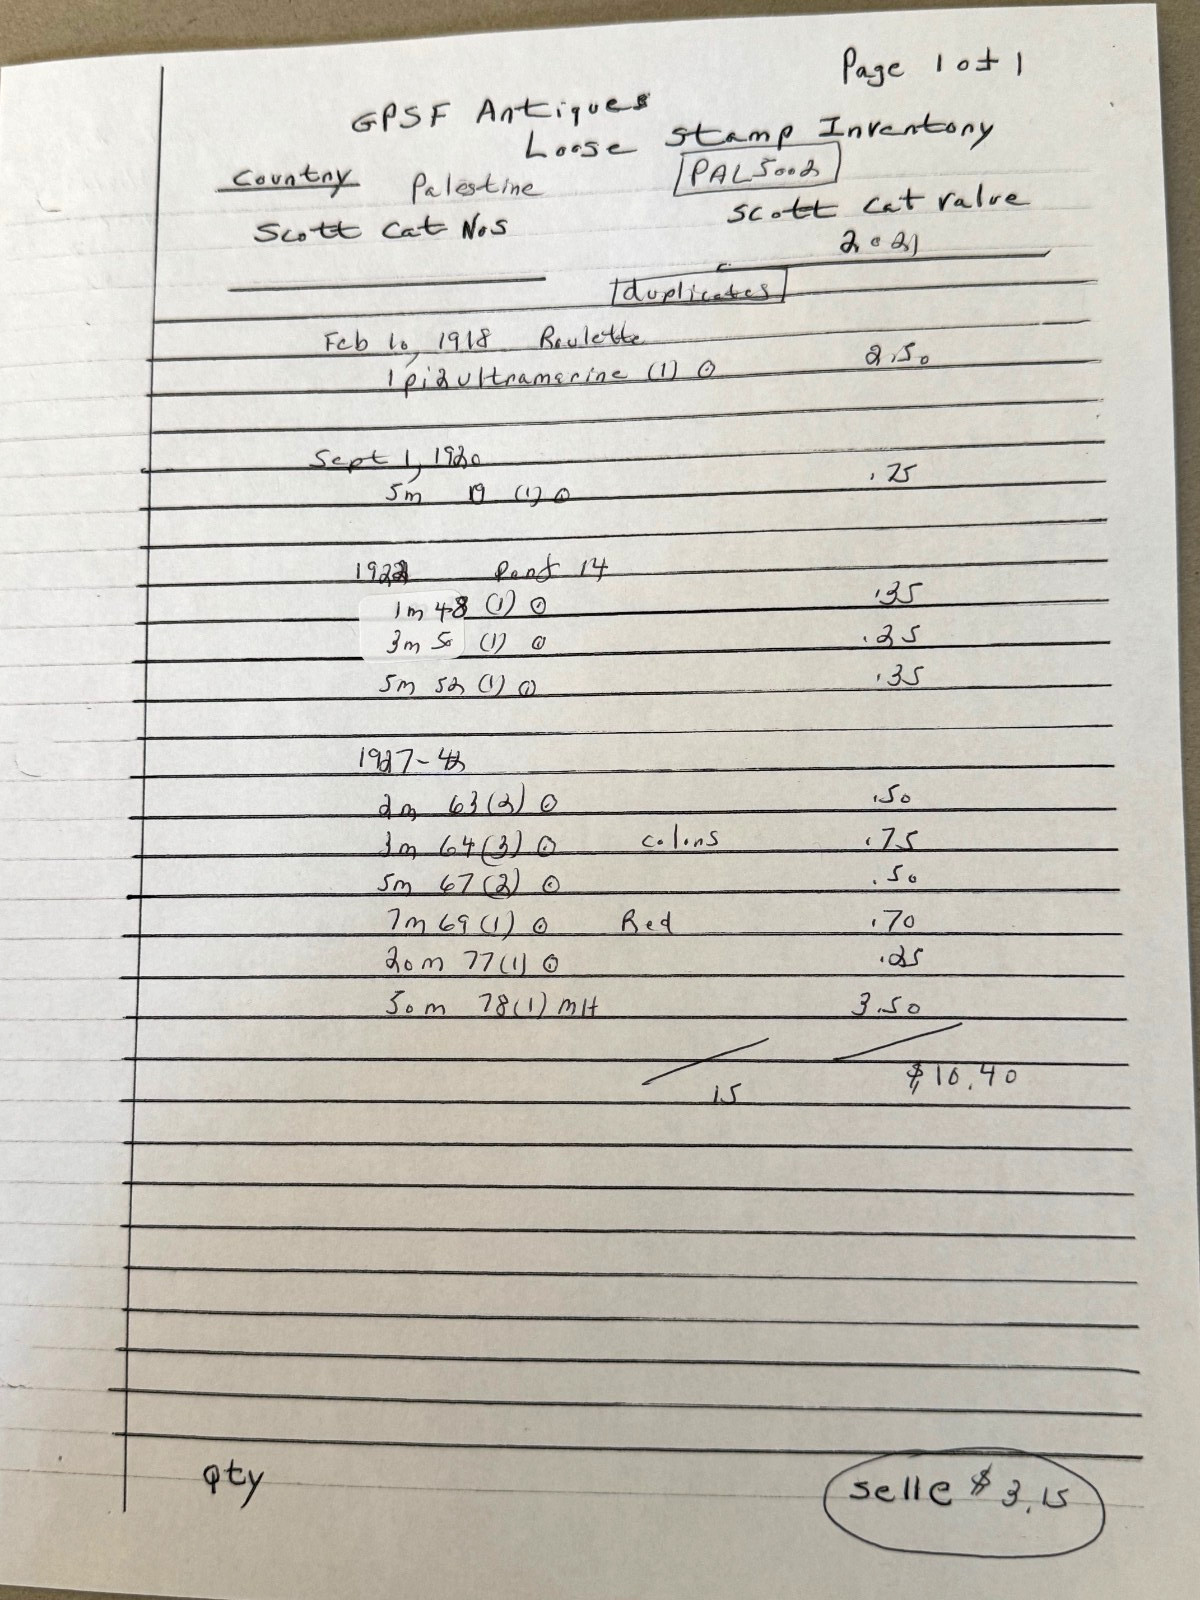 Page 1 of 1
GPSF Antiques
Loose Stamp Inventory
Country Palestine PAL5002
Scott Cat Nos Scott Cat value
2021
duplicates
Feb 10, 1918 Roulette
1 pi 2 ultramarine (1) ⊙ 2.50
Sept 1, 1920
5m 19 (1) ⊙ .75
1922 Perf 14
1m 48 (1) ⊙ .35
3m 50 (1) ⊙ .25
5m 52 (1) ⊙ .35
1927-42
2m 63 (2) ⊙ .50
3m 64 (3) ⊙ colors .75
5m 67 (2) ⊙ .50
7m 69 (1) ⊙ Red .70
20m 77 (1) ⊙ .25
50m 78 (1) MH 3.50
15 $10.40
Qty selle $3.15